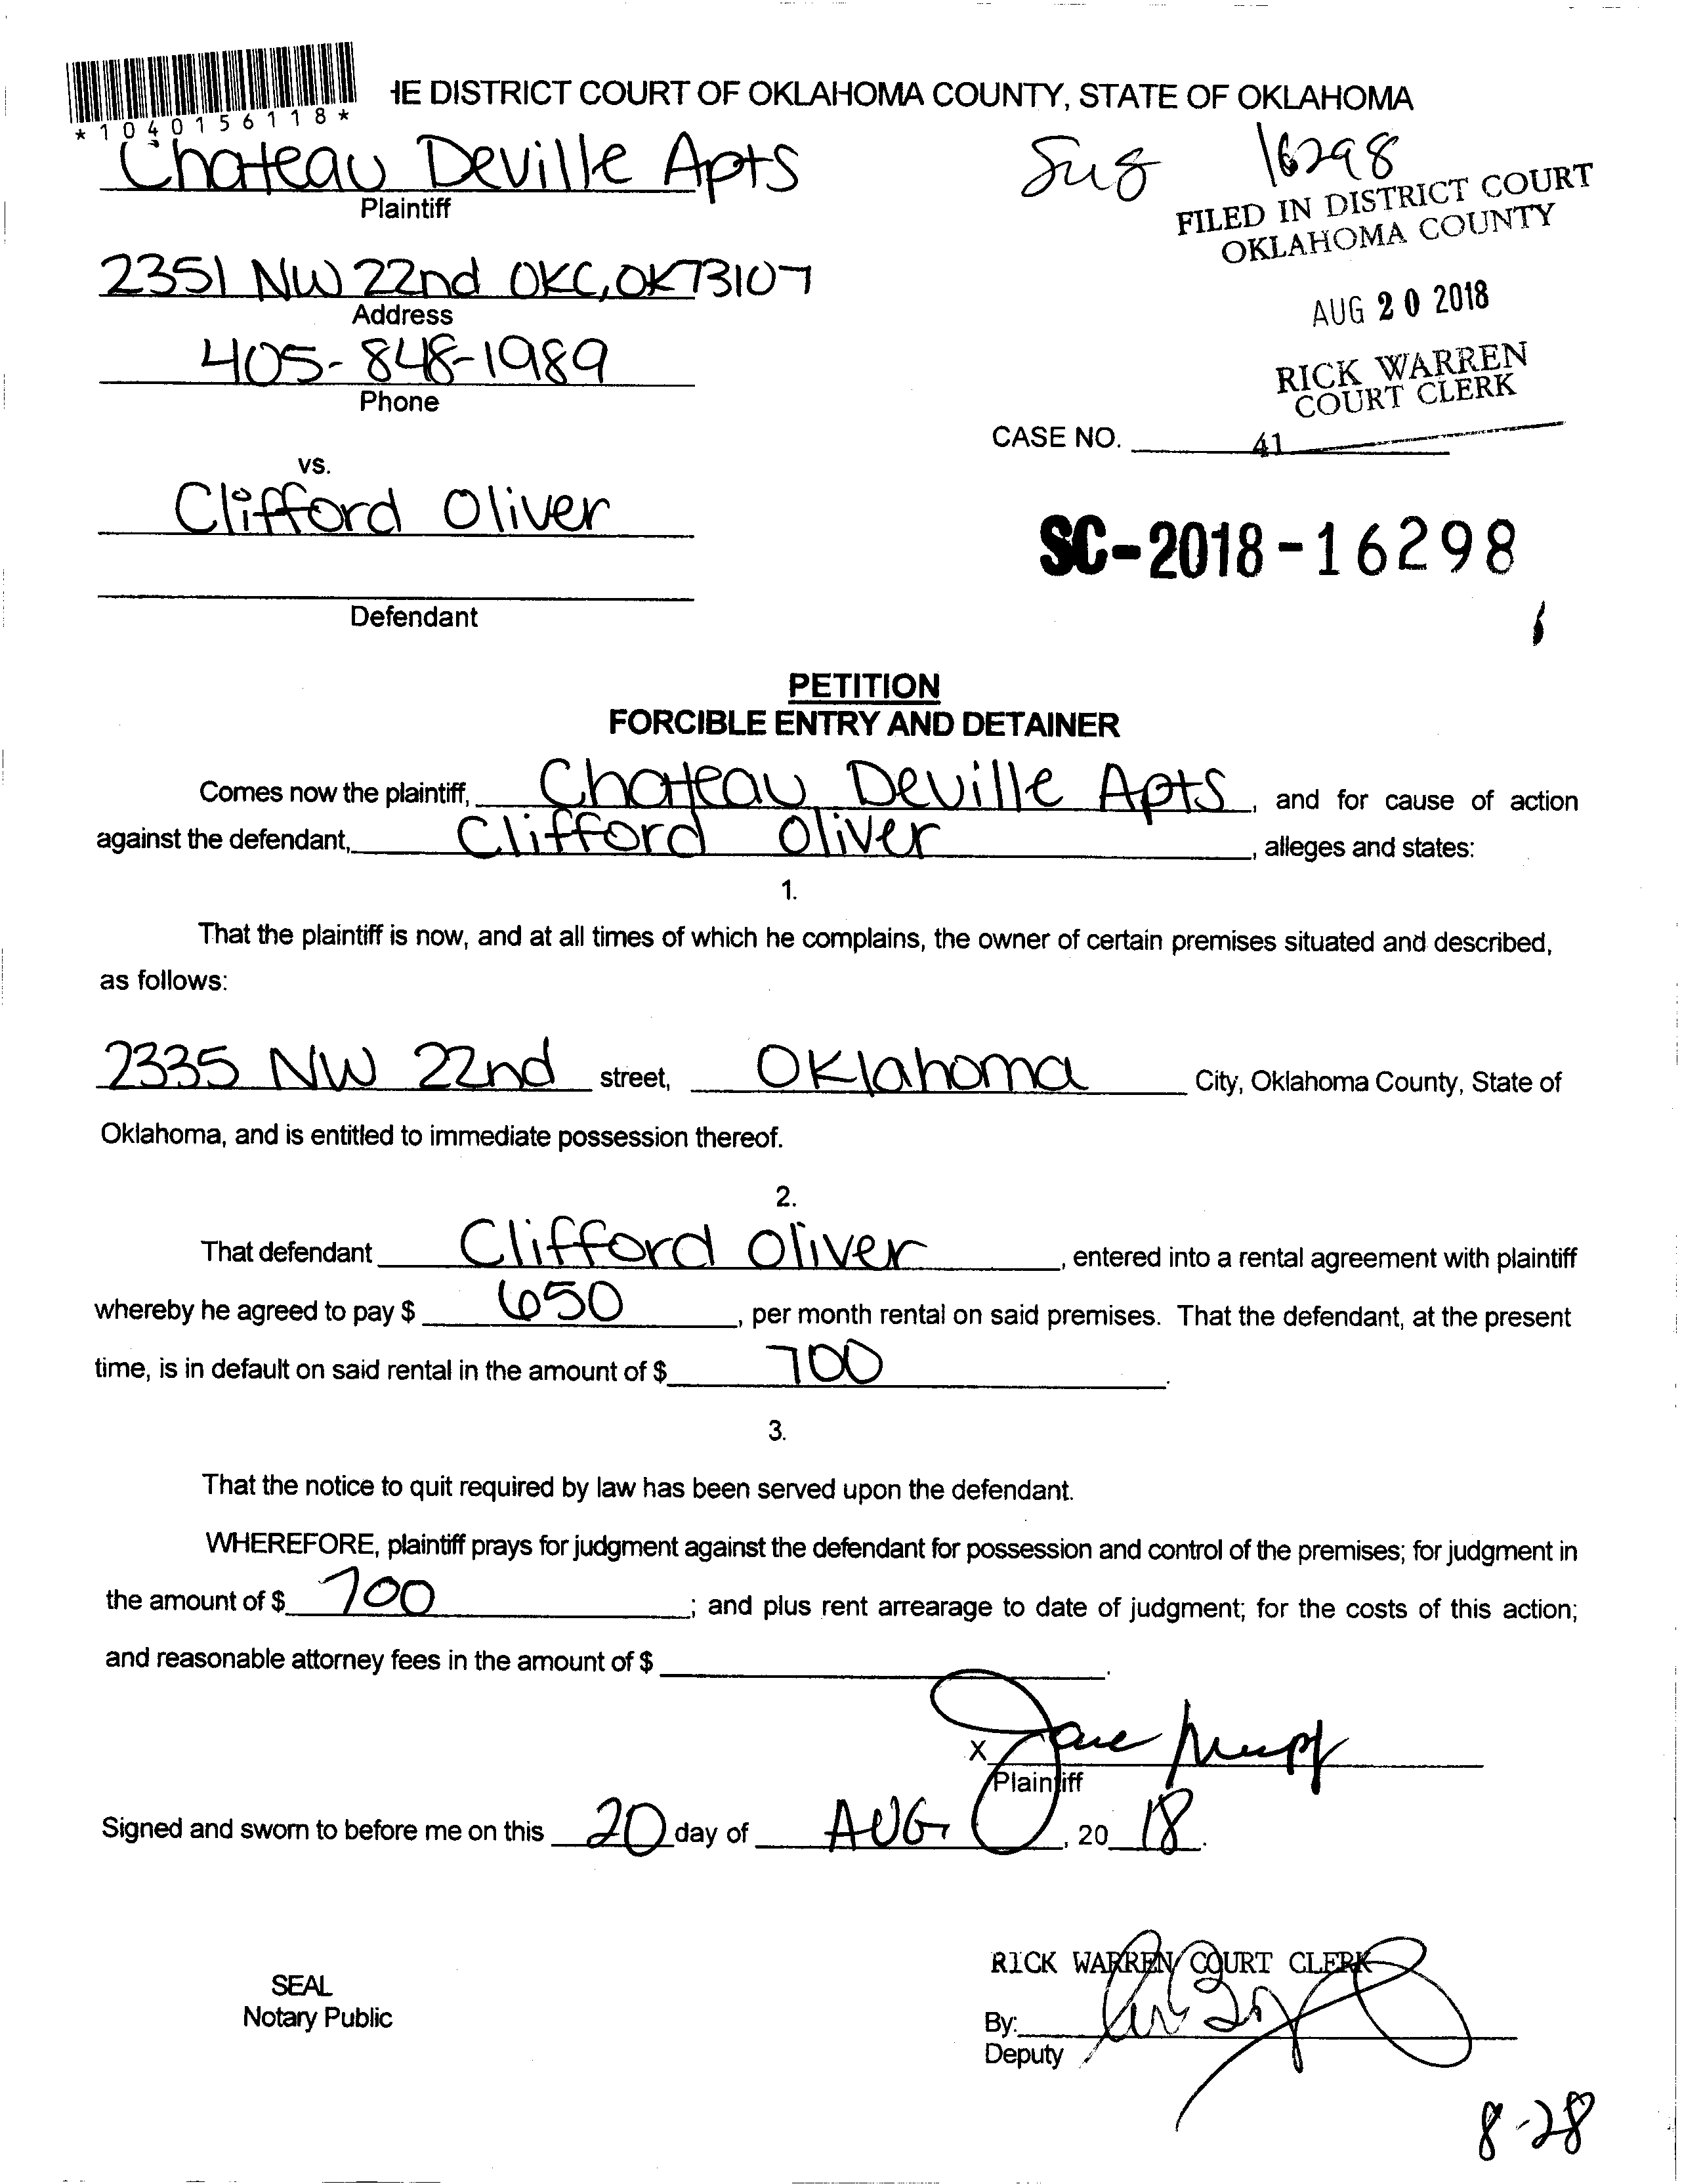 *1040156118*
HE DISTRICT COURT OF OKLAHOMA COUNTY, STATE OF OKLAHOMA
Chateau Deville Apts
Plaintiff
16298
FILED IN DISTRICT COURT
OKLAHOMA COUNTY
2351 NW 22nd OKC, OK 73107
Address
AUG 20 2018
405-848-1989
Phone
RICK WARREN
COURT CLERK
CASE NO.
41
vs.
Clifford Oliver
SC-2018-16298
Defendant
PETITION
FORCIBLE ENTRY AND DETAINER
Comes now the plaintiff, Chateau Deville Apts, and for cause of action
against the defendant, Clifford Oliver, alleges and states:
1.
That the plaintiff is now, and at all times of which he complains, the owner of certain premises situated and described,
as follows:
2335 NW 22nd street, Oklahoma City, Oklahoma County, State of
Oklahoma, and is entitled to immediate possession thereof.
2.
That defendant Clifford Oliver, entered into a rental agreement with plaintiff
whereby he agreed to pay $ 650, per month rental on said premises. That the defendant, at the present
time, is in default on said rental in the amount of $ 700.
3.
That the notice to quit required by law has been served upon the defendant.
WHEREFORE, plaintiff prays for judgment against the defendant for possession and control of the premises; for judgment in
the amount of $ 700; and plus rent arrearage to date of judgment; for the costs of this action;
and reasonable attorney fees in the amount of $ .
X
Plaintiff
Signed and sworn to before me on this 20 day of AUG, 20 18.
RICK WARREN COURT CLERK
SEAL
Notary Public
By:
Deputy
8-28